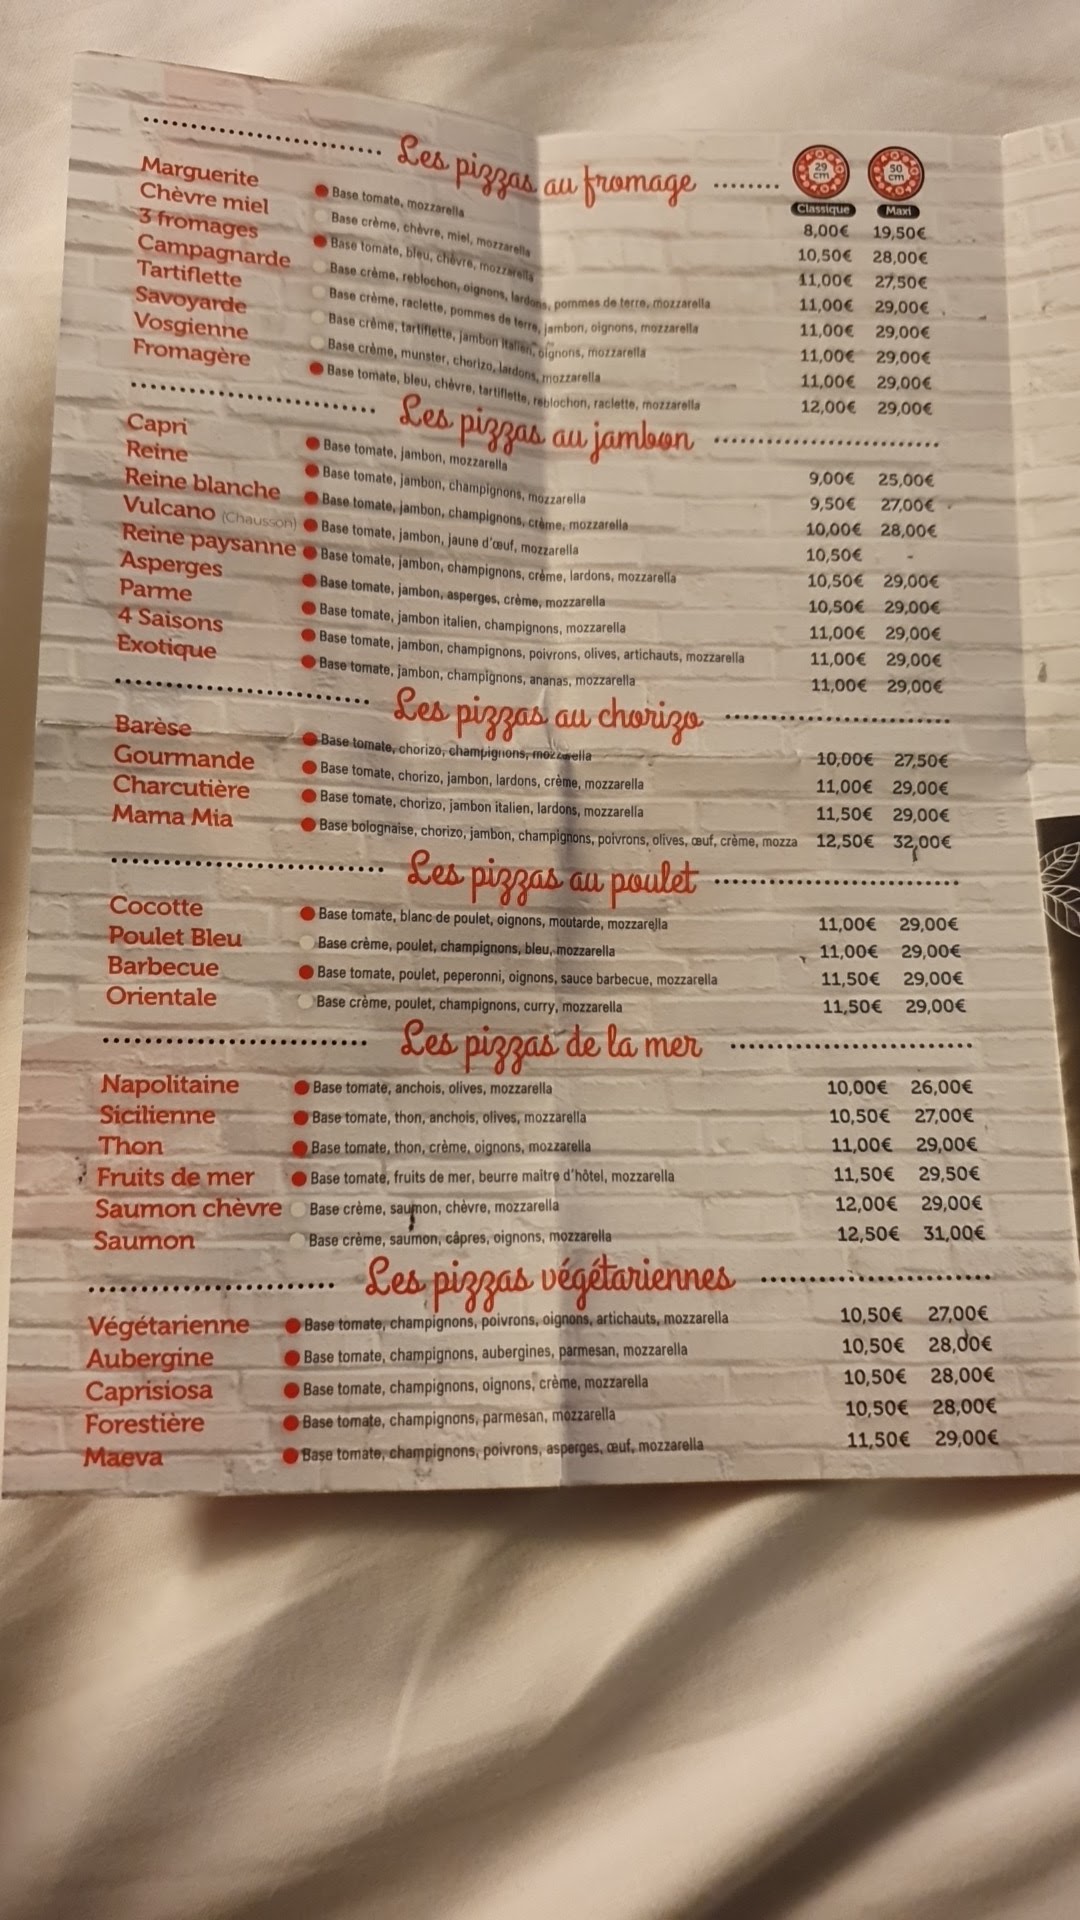 Les pizzas au fromage 29 cm 50 cm
Classique Maxi
Marguerite Base tomate, mozzarella 8,00€ 19,50€
Chèvre miel Base crème, chèvre, miel, mozzarella 10,50€ 28,00€
3 fromages Base tomate, bleu, chèvre, mozzarella 11,00€ 27,50€
Campagnarde Base crème, reblochon, oignons, lardons, pommes de terre, mozzarella 11,00€ 29,00€
Tartiflette Base crème, raclette, pommes de terre, jambon, oignons, mozzarella 11,00€ 29,00€
Savoyarde Base crème, tartiflette, jambon italien, oignons, mozzarella 11,00€ 29,00€
Vosgienne Base crème, munster, chorizo, lardons, mozzarella 11,00€ 29,00€
Fromagère Base tomate, bleu, chèvre, tartiflette, reblochon, raclette, mozzarella 12,00€ 29,00€
Les pizzas au jambon
Capri Base tomate, jambon, mozzarella 9,00€ 25,00€
Reine Base tomate, jambon, champignons, mozzarella 9,50€ 27,00€
Reine blanche Base tomate, jambon, champignons, crème, mozzarella 10,00€ 28,00€
Vulcano (Chausson) Base tomate, jambon, jaune d'œuf, mozzarella 10,50€ -
Reine paysanne Base tomate, jambon, champignons, crème, lardons, mozzarella 10,50€ 29,00€
Asperges Base tomate, jambon, asperges, crème, mozzarella 10,50€ 29,00€
Parme Base tomate, jambon italien, champignons, mozzarella 11,00€ 29,00€
4 Saisons Base tomate, jambon, champignons, poivrons, olives, artichauts, mozzarella 11,00€ 29,00€
Exotique Base tomate, jambon, champignons, ananas, mozzarella 11,00€ 29,00€
Les pizzas au chorizo
Barèse Base tomate, chorizo, champignons, mozzarella 10,00€ 27,50€
Gourmande Base tomate, chorizo, jambon, lardons, crème, mozzarella 11,00€ 29,00€
Charcutière Base tomate, chorizo, jambon italien, lardons, mozzarella 11,50€ 29,00€
Mama Mia Base bolognaise, chorizo, jambon, champignons, poivrons, olives, œuf, crème, mozza 12,50€ 32,00€
Les pizzas au poulet
Cocotte Base tomate, blanc de poulet, oignons, moutarde, mozzarella 11,00€ 29,00€
Poulet Bleu Base crème, poulet, champignons, bleu, mozzarella 11,00€ 29,00€
Barbecue Base tomate, poulet, peperonni, oignons, sauce barbecue, mozzarella 11,50€ 29,00€
Orientale Base crème, poulet, champignons, curry, mozzarella 11,50€ 29,00€
Les pizzas de la mer
Napolitaine Base tomate, anchois, olives, mozzarella 10,00€ 26,00€
Sicilienne Base tomate, thon, anchois, olives, mozzarella 10,50€ 27,00€
Thon Base tomate, thon, crème, oignons, mozzarella 11,00€ 29,00€
Fruits de mer Base tomate, fruits de mer, beurre maitre d'hôtel, mozzarella 11,50€ 29,50€
Saumon chèvre Base crème, saumon, chèvre, mozzarella 12,00€ 29,00€
Saumon Base crème, saumon, câpres, oignons, mozzarella 12,50€ 31,00€
Les pizzas végétariennes
Végétarienne Base tomate, champignons, poivrons, oignons, artichauts, mozzarella 10,50€ 27,00€
Aubergine Base tomate, champignons, aubergines, parmesan, mozzarella 10,50€ 28,00€
Caprisiosa Base tomate, champignons, oignons, crème, mozzarella 10,50€ 28,00€
Forestière Base tomate, champignons, parmesan, mozzarella 10,50€ 28,00€
Maeva Base tomate, champignons, poivrons, asperges, œuf, mozzarella 11,50€ 29,00€